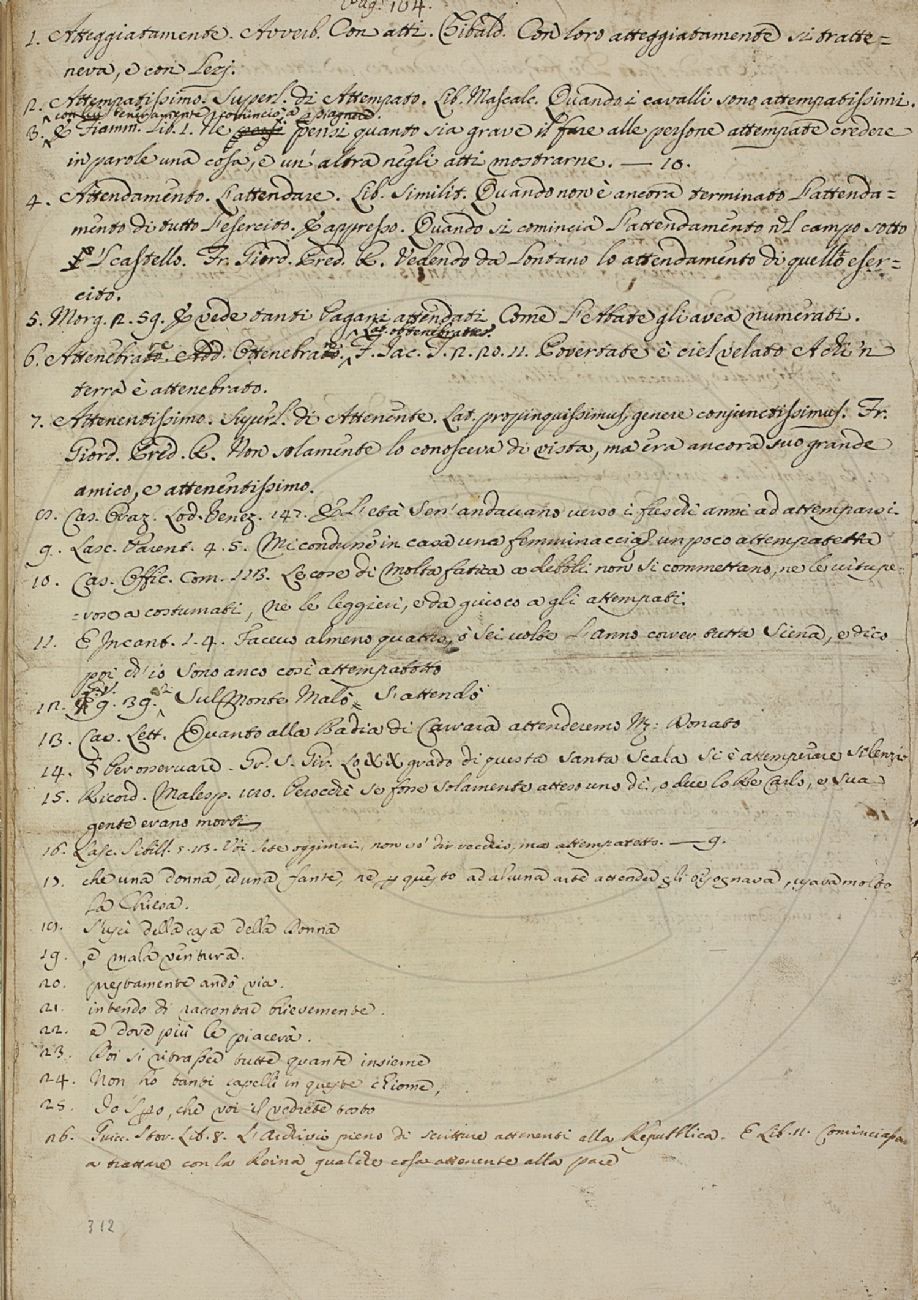 Pag. 164.
1. Atteggiatamente. Avverb. Con atti. Zibald. Con loro atteggiatamente si tratte=
neva, e con Lezj.
2. Attempatissimo. Superl. di Attempato. Lib. Mascalc. Quando i cavalli sono attempatissimi.
teneramente cominciò a piagnere
3. E Fiamm. Lib. 1. Ne pensi quanto sia grave il fare alle persone attempate credere
in parole una cosa, e un' altra negli atti mostrarne. — 10.
4. Attendamento. L'attendare. Lib. Similit. Quando non è ancora terminato l'attenda=
mento di tutto l'esercito. E appresso. Quando si comincia l'attendamento nel campo sotto
'l castello. Fr. Giord. Pred. R. Vedendo da lontano lo attendamento di quello eser=
cito.
5. Morg. 2. 59. E vede tanti Pagani attendati Come l'Abate gli avea numerati.
Lat. obtenebratus.
6. Attenebrato. Add. Ottenebrato. F. Jac. T. 2. 20. 11. Povertate è ciel velato A chi 'n
terra è attenebrato.
7. Attenentissimo. Superl. di Attenente. Lat. propinquissimus, genere conjunctissimus. Fr.
Giord. Pred. R. Non solamente lo conosceva di vista, ma era ancora suo grande
amico, e attenentissimo.
8. Cas. Oraz. Lod. Venez. 147. E l'età sen' andavano verso i freschi anni ad attemparsi.
9. Lasc. Parent. 4. 5. Mi condusse in casa una femminaccia un poco attempatetta
10. Cas. Offic. Com. 113. Le cose di molta fatica a deboli non si commettano, ne le vitupe=
=rose a costumati, ne le leggieri, e da giuoco a gli attempati.
11. E Incant. 1. 4. Faceva almeno quattro, o sei volte l'anno correr tutta Siena, e dico
poi ch' io sono anco così attempatotto
12. 9. 39. Sul Monte Malo S'attendò
13. Car. Lett. Quanto alla Badia di Carrara attenderemo M. Donato
14. E per osservare. Gr. S. Gir. Lo XX grado di questa santa Scala si è attemperare silenzio
15. Ricord. Malesp. 180. Perocchè se fosse solamente atteso uno dì, o due lo Re Carlo, e sua
gente erano morti
16. Lasc. Sibill. 5. 13. Voi siete oggimai, non vo' dir vecchio, ma attempatetto. — 9.
17. che una donna, ed una fante, ne per questo ad alcuna arte attender gli bisognava, usava molto
la Chiesa.
18. S'uscì della casa della Donna
19. , e mala ventura.
20. prestamente andò via.
21. intendo di raccontar brievemente.
22. e dove più le piacerà.
23. Poi si ritrasser tutte quante insieme
24. Non ho tanti capelli in queste chiome,
25. Io spero, che voi 'l vedrete tosto
26. Guic. Stor. Lib. 8. L'Archivio pieno di scritture attenenti alla Repubblica. E Lib. 11. Cominciasse
a trattare con la Reina qualche cosa attenente alla pace
312